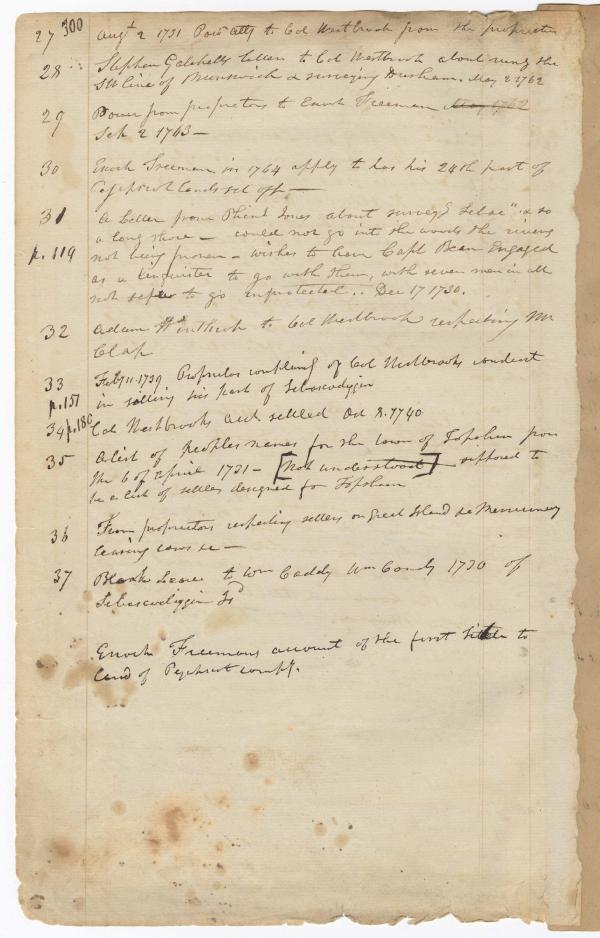 300
27 Augt 2 1731 Powr Atty to Col Westbrook from the proprietors
28 Stephen Gatchells letter to Col Westbrook about rung the
SW line of Brunswick & surveying Durham. May 2 1762
29 Power from proprietors to Enoch Freeman May 1762
Feb 2 1763 —
30 Enoch Freeman in 1764 apply to has his 24th part of
Pejepscot lands set off —
31 A letter from Phins Jones about surveyg Sebas" & so
p. 119 a long shore — could not go into the woods the rivers
not being frozen — wishes to have Capt Bean Engaged
as a Linguister to go with them, with seven men in all
not safe to go unprotected .. Dec 17 1730.
32 Adam Winthrop to Col Westbrook respecting Mr
Clap
33 Feby 11. 1739 Proprietos complaing of Col Westbrooks conduct
p. 151 in selling his part of Sebascodiggin
34 p. 186 Col Westbrooks acct settled Oct 8. 1740
35 A list of Peoples names for the town of Topsham from
the 6 of April 1731 — [Not understood] — supposed to
be a list of settlers designed for Topsham
36 From proprietors respecting settlers on Great Island &
leasing cows &c —
37 Blank Lease to Wm Caddy Wm Condy 1730 of
Sebascodiggin Isd
Enoch Freemans account of the first settle to
land of Pejepscot compy.